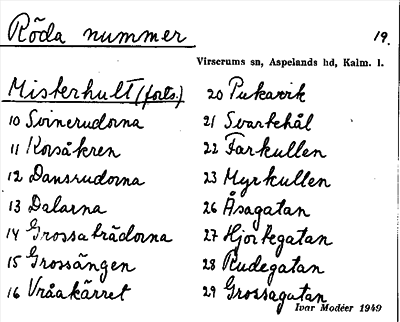 Röda nummer 19.
Virserums sn, Aspelands hd, Kalm. l.
Misterhult (forts.)
10 Svinerudorna
11 Korsåkren
12 Dansrudorna
13 Dalarna
14 Grossaträdorna
15 Grossängen
16 Vråakärret
20 Pukarvik
21 Svartehål
22 Farkullen
23 Myrkullen
26 Åsagatan
27 Hjortegatan
28 Rudegatan
29 Grossagatan
Ivar Modéer 1949